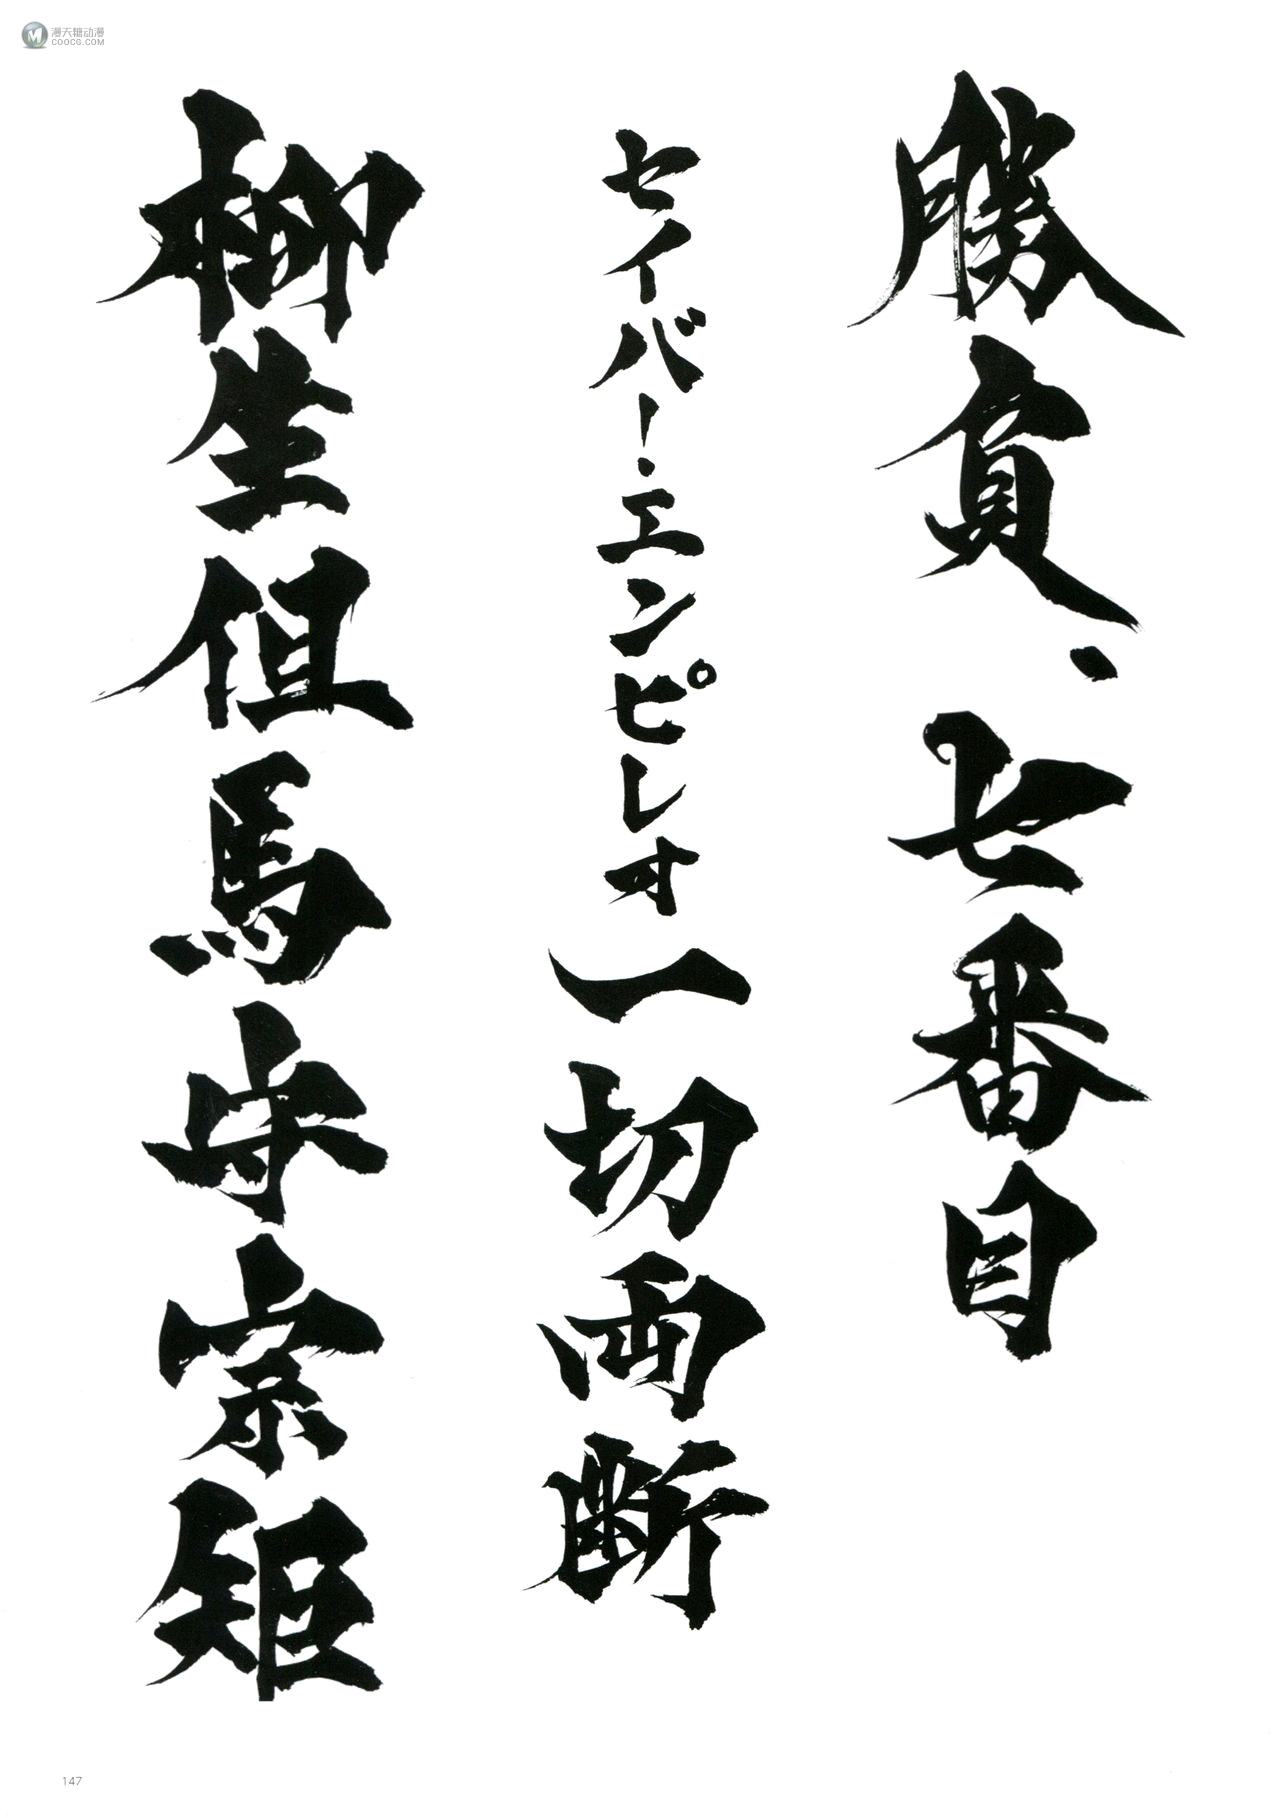 漫天糖动漫
COOCG.COM
勝負、七番目
セイバー・エンピレオ一切両断
柳生但馬守宗矩
147